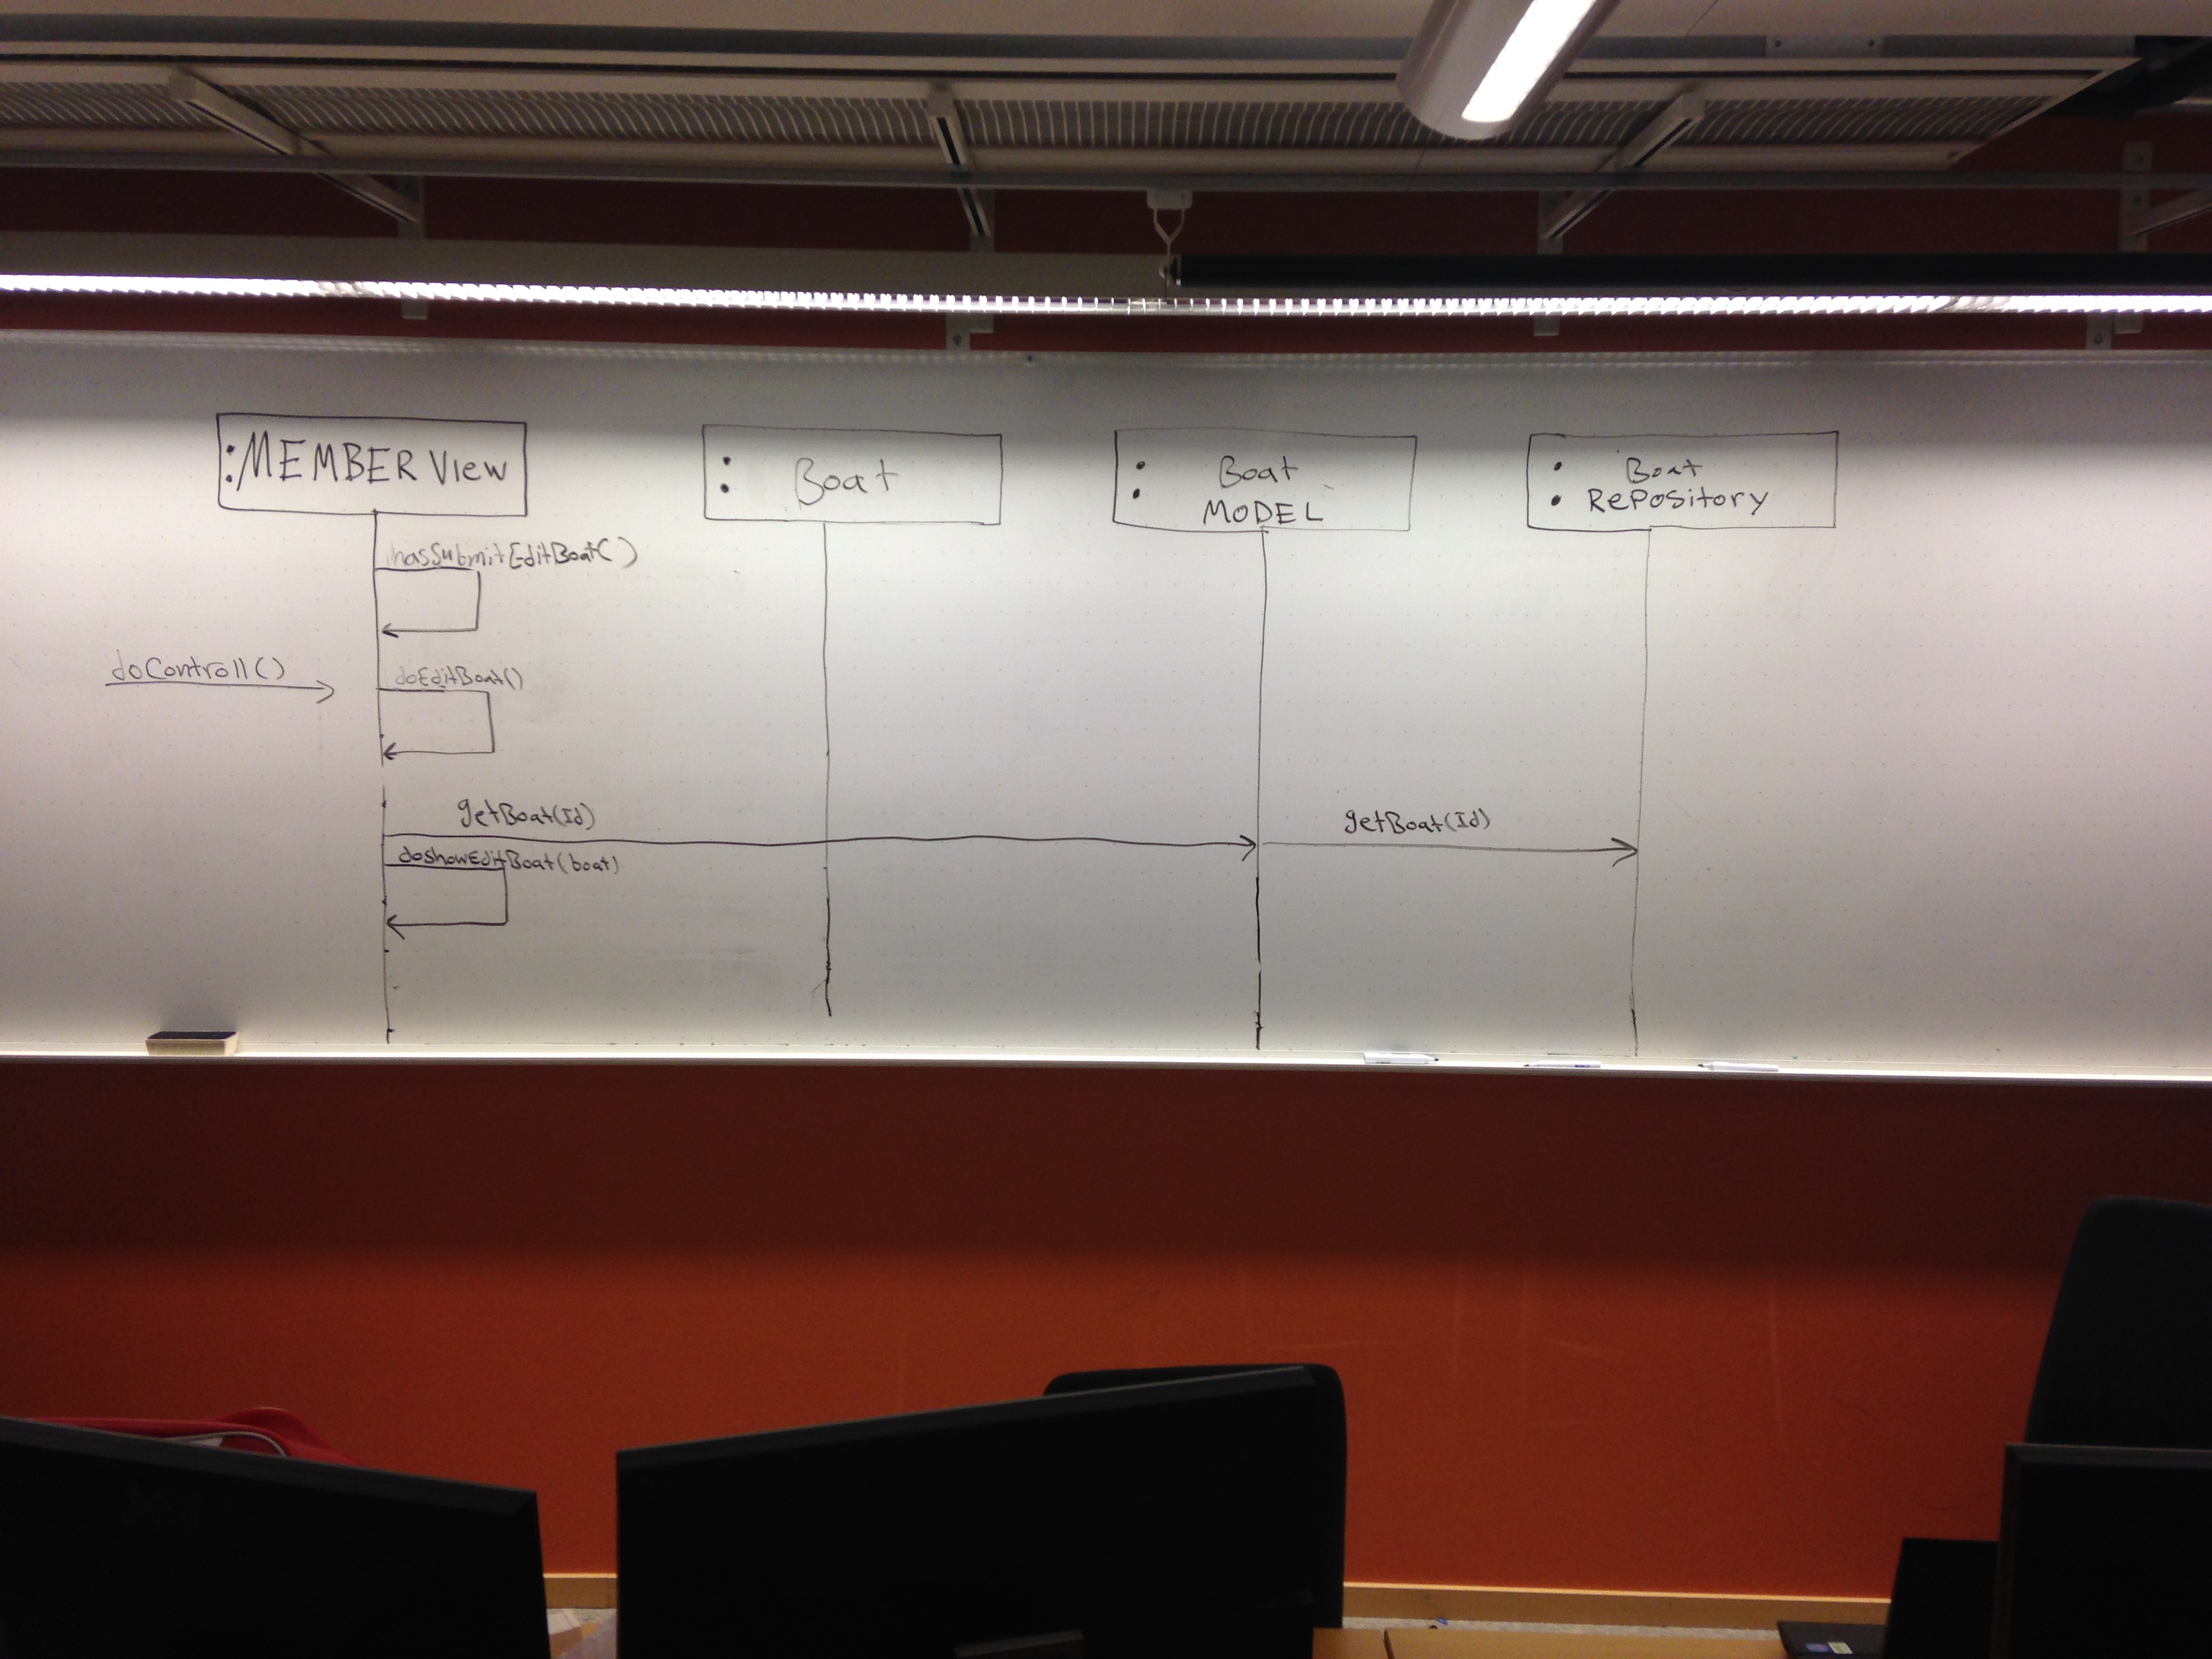 :MEMBER View
: Boat
: Boat
MODEL
: Boat
Repository
hasSubmitEditBoat( )
doControll()
doEditBoat()
getBoat(Id)
getBoat(Id)
doshowEditBoat(boat)